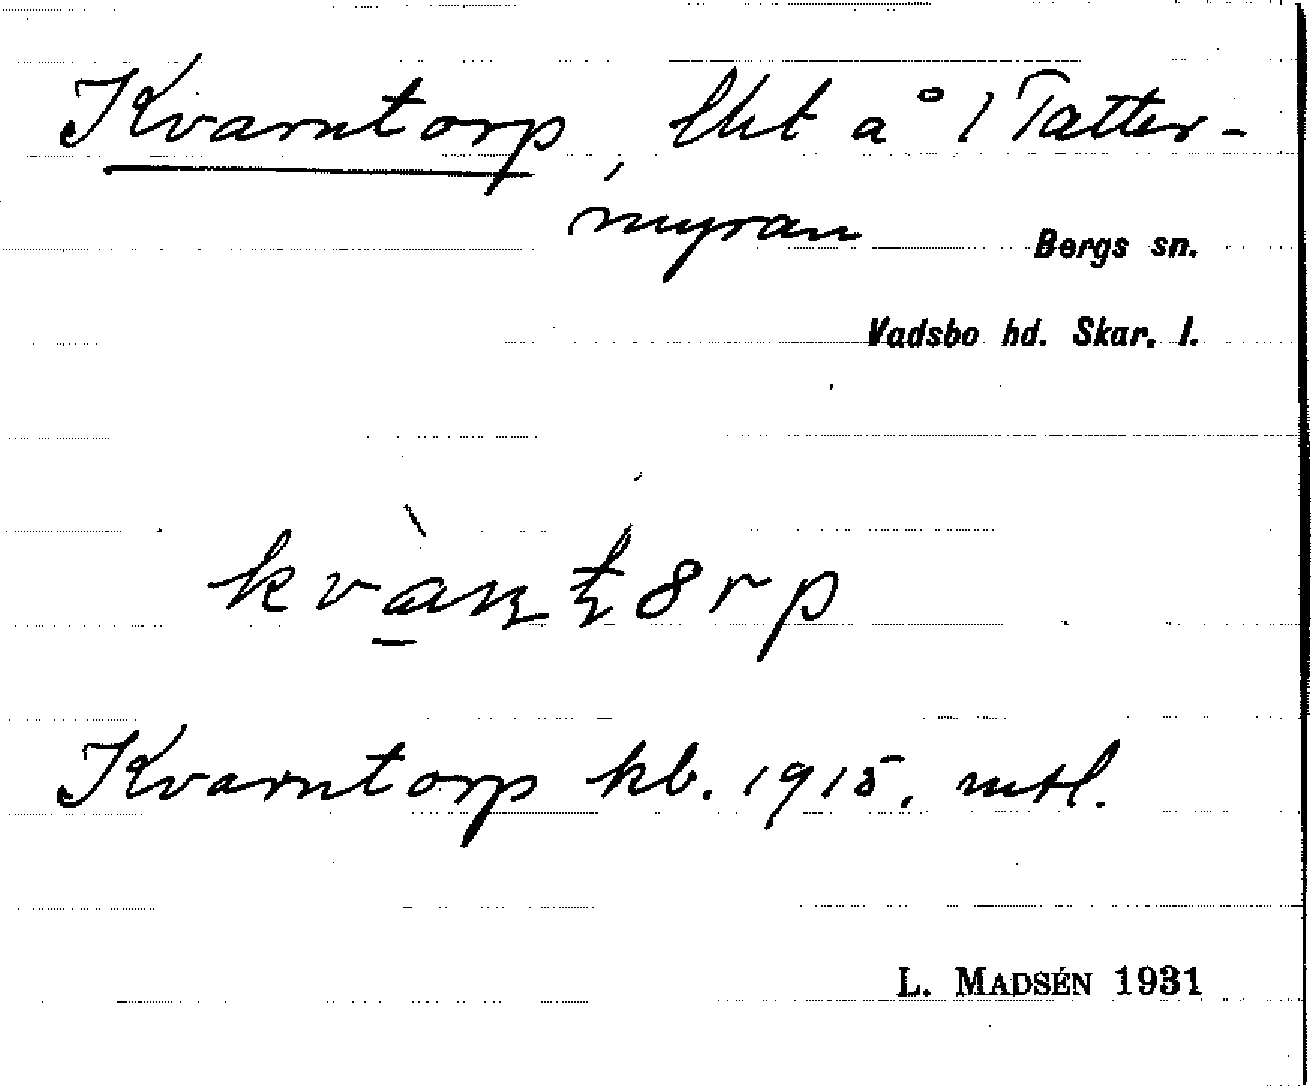 Kvarntorp, lht å 1 Tatter-
myran
Bergs sn.
Vadsbo hd. Skar. l.
kvàn̠ţ8rp
Kvarntorp kb. 1915, mtl.
L. MADSÉN 1931